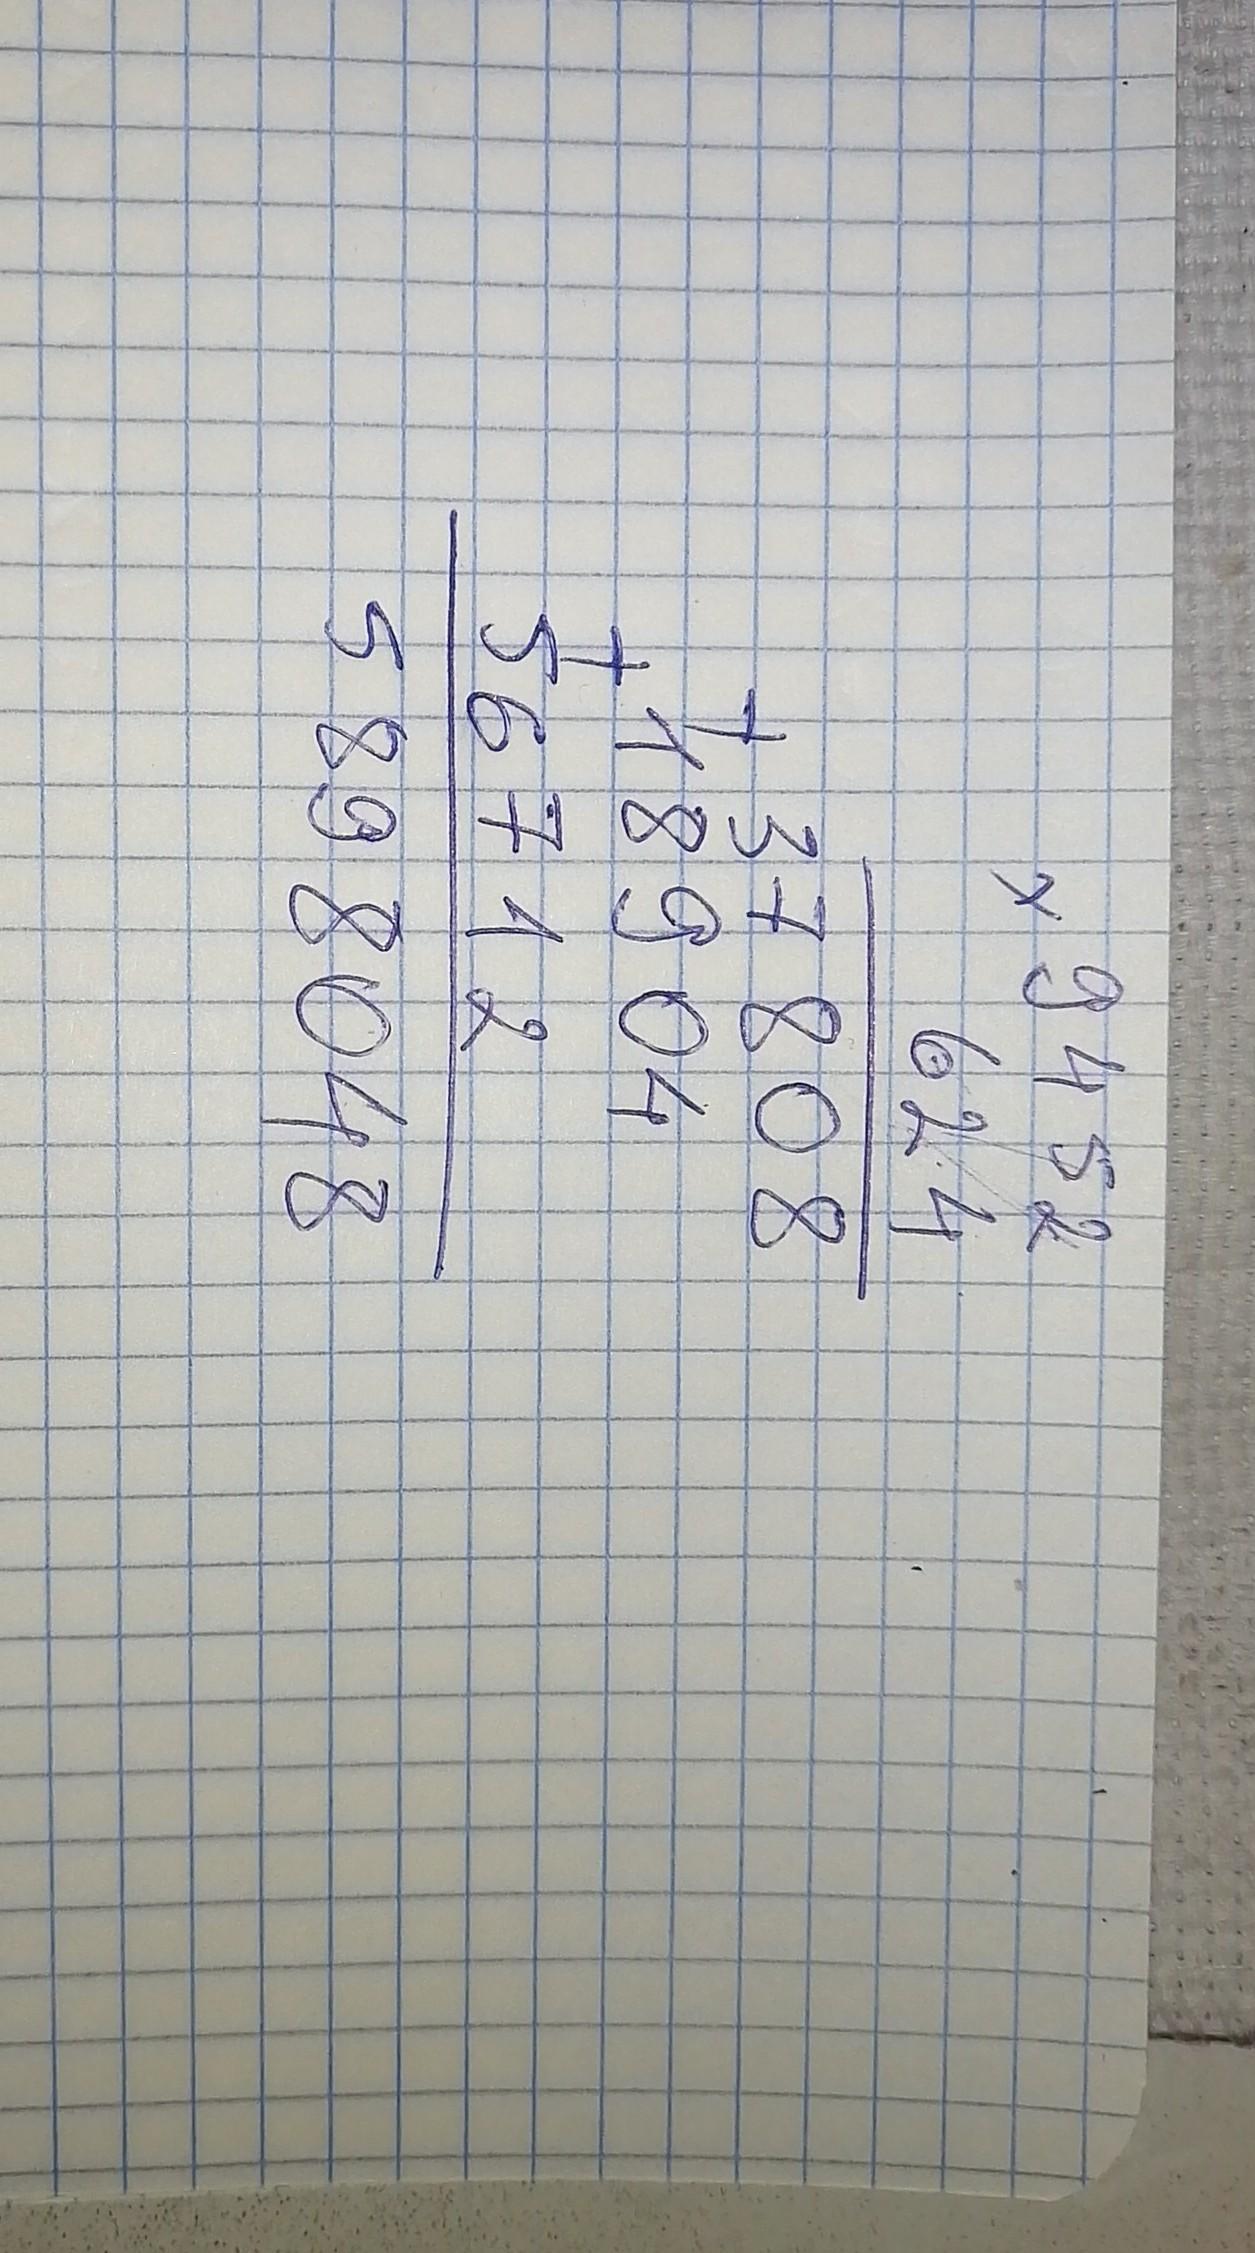 × 9452
624
+ 37808
+ 18904
56712
5898048